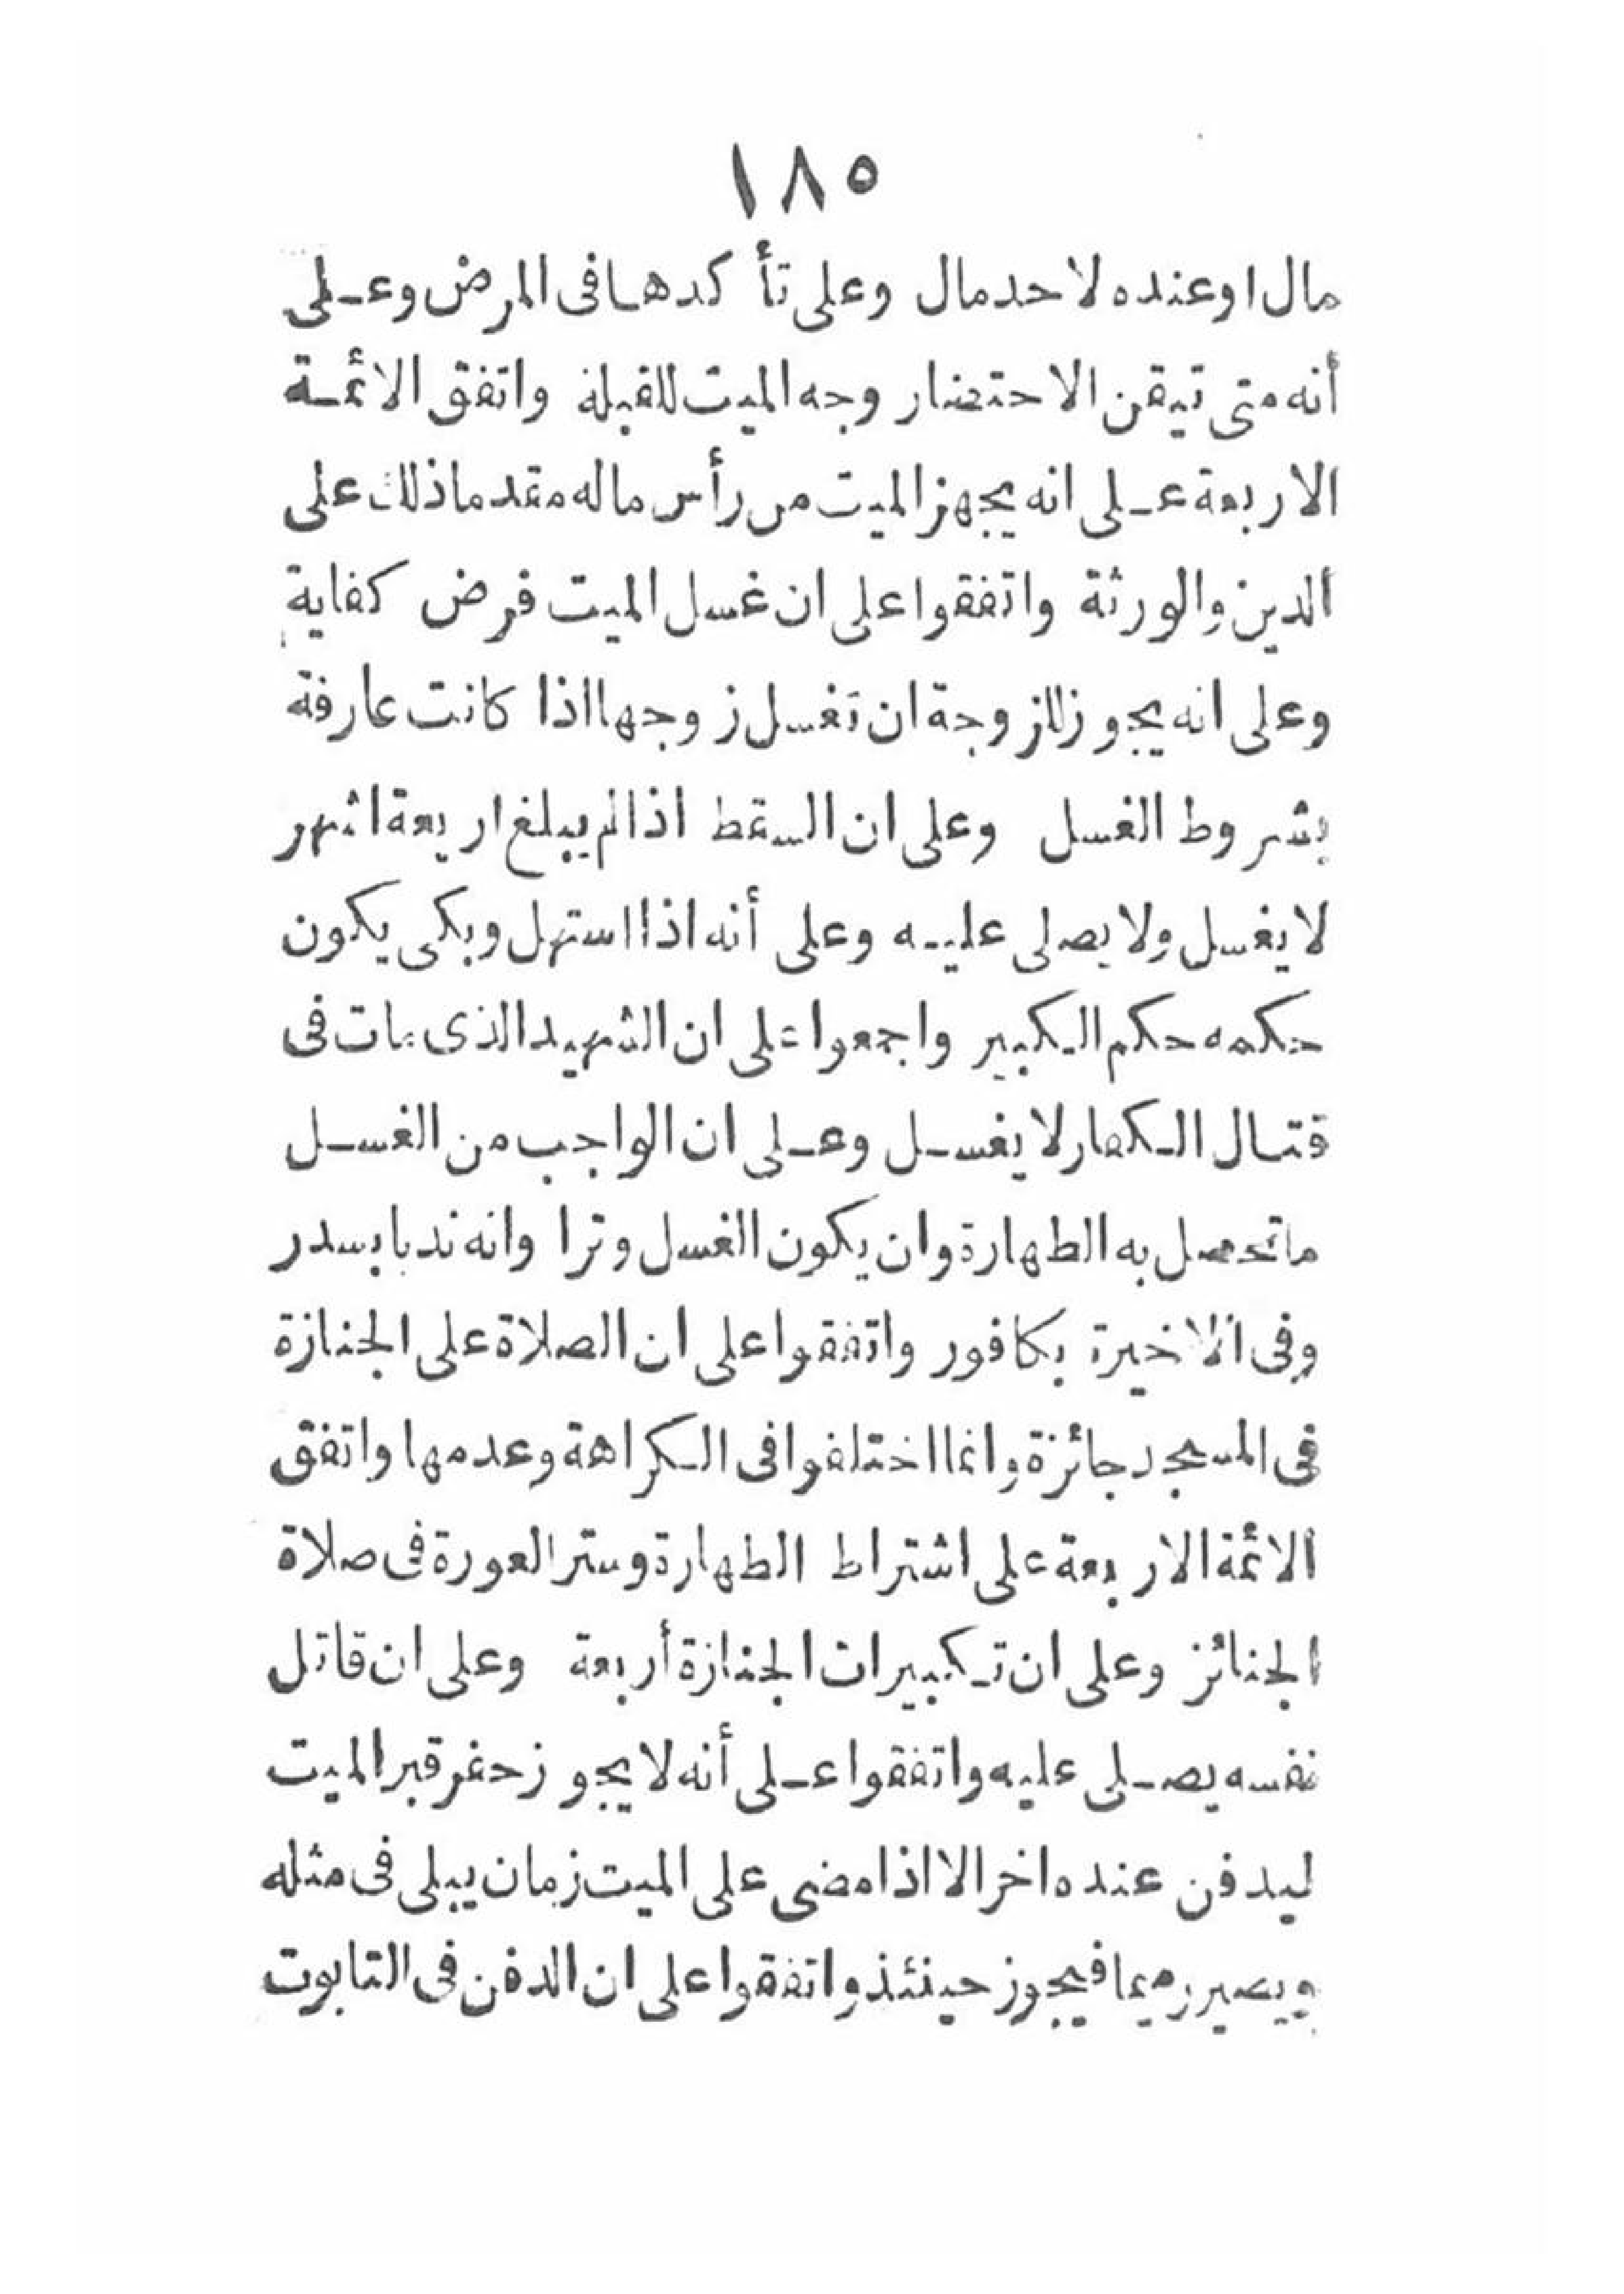 ١٨٥
مال اوعنده لاحد مال وعلى تأكدها فى المرض وعلى
أنه متى تيقن الاحتضار وجه الميت للقبلة واتفق الائمة
الاربعة على انه يجهز الميت من رأس ماله مقدما ذلك على
الدين والورثة واتفقوا على ان غسل الميت فرض كفاية
وعلى انه يجوز للزوجة ان تغسل زوجها اذا كانت عارفة
بشروط الغسل وعلى ان السقط اذا لم يبلغ اربعة اشهر
لا يغسل ولا يصلى عليه وعلى أنه اذا استهل وبكى يكون
حكمه حكم الكبير واجمعوا على ان الشهيد الذى مات فى
قتال الكفار لا يغسل وعلى ان الواجب من الغسل
ما تحصل به الطهارة وان يكون الغسل وترا وانه ندبا بسدر
وفى الاخيرة بكافور واتفقوا على ان الصلاة على الجنازة
فى المسجد جائزة وانما اختلفوا فى الكراهة وعدمها واتفق
الائمة الاربعة على اشتراط الطهارة وستر العورة فى صلاة
الجنائز وعلى ان تكبيرات الجنازة أربعة وعلى ان قاتل
نفسه يصلى عليه واتفقوا على أنه لا يجوز حفر قبر الميت
ليدفن عنده اخر الا اذا مضى على الميت زمان يبلى فى مثله
ويصير رميما فيجوز حينئذ واتفقوا على ان الدفن فى التابوت